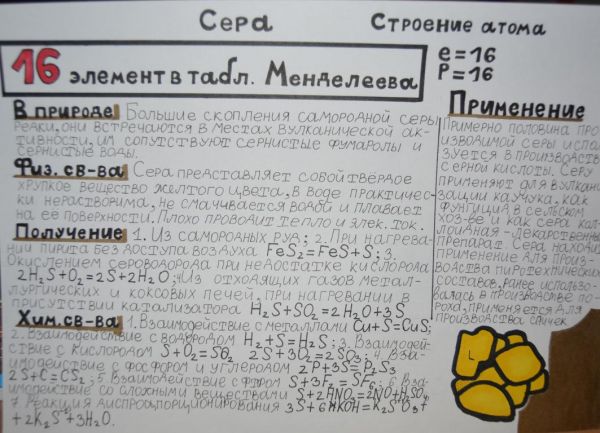 Сера
Строение атома
16 элемент в табл. Менделеева
e=16
P=16
В природе Большие скопления самородной серы
редки, они встречаются в местах вулканической ак-
тивности, им сопутствуют сернистые фумаролы и
сернистые воды.
Физ. св-ва Сера представляет собой твёрдое
хрупкое вещество желтого цвета, в воде практичес-
ки нерастворима, не смачивается водой и плавает
на ее поверхности. Плохо проводит тепло и элек. ток.
Получение 1. Из самородных руд; 2. При нагрева-
нии пирита без доступа воздуха FeS₂=FeS+S; 3.
Окислением сероводорода при недостатке кислорода
2H₂S+O₂=2S+2H₂O; 4. Из отходящих газов метал-
лургических и коксовых печей, при нагревании в
присутствии катализатора H₂S+SO₂=2H₂O+3S
Хим. св-ва 1. Взаимодействие с металлами Cu+S=CuS;
2. Взаимодействие с водородом H₂+S=H₂S; 3. Взаимодей-
ствие с кислородом S+O₂=SO₂ 2S+3O₂=2SO₃; 4. Вза-
имодействие с фосфором и углеродом 2P+3S=P₂S₃
2S+C=CS₂; 5 Взаимодействие с фтором S+3F₂=SF₆; 6 Вза-
имодействие со сложными веществами S+2HNO₃=2NO+H₂SO₄
7 Реакция диспропорционирования 3S+6KOH=K₂SO₃+
+2K₂S+3H₂O.
Применение
Примерно половина про-
изводимой серы исполь
зуется в производстве
серной кислоты. Серу
применяют для вулкани-
зации каучука, как
фунгицид в сельском
хоз-ве и как сера кол-
лоидная - лекарственный
препарат. Сера находит
применение для произ-
водства пиротехнических
составов, ранее использо-
валась в производстве по-
роха, применяется для
производства спичек